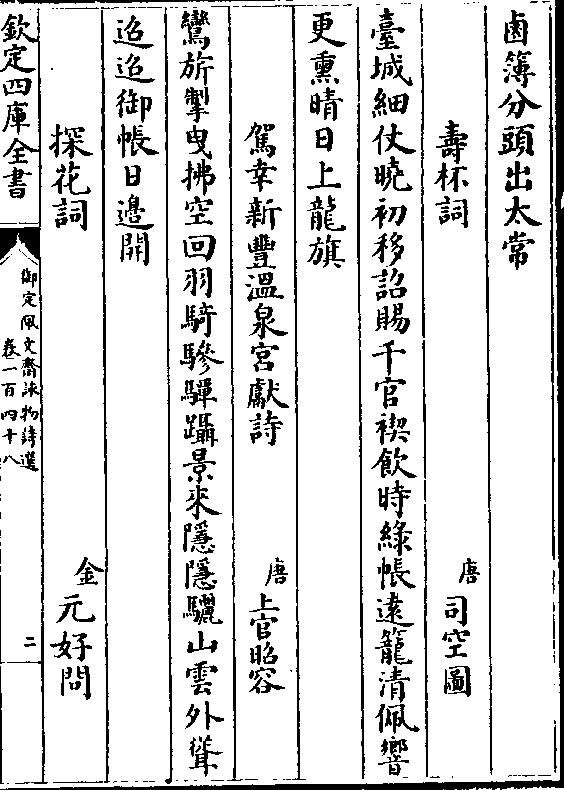 鹵簿分頭出太常
壽杯詞 唐 司空圖
臺城細仗曉初移詔賜千官禊飲時綠帳遠籠清佩響
更熏晴日上龍旗
駕幸新豐溫泉宮獻詩 唐 上官昭容
鸞旂掣曳拂空回羽騎驂驔躡景來隱隱驪山雲外聳
迢迢御帳日邊開
探花詞 金 元好問
欽定四庫全書
御定佩文齋詠物詩選
卷一百四十八
二